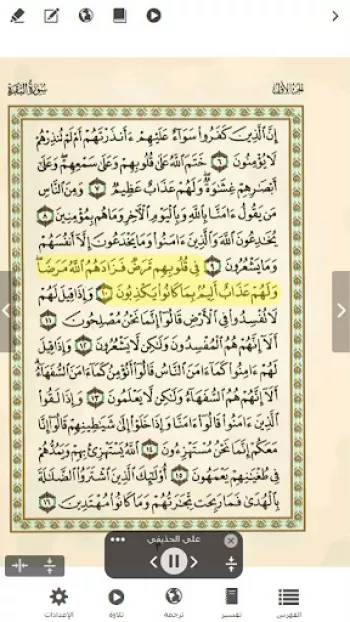 سورة البقرة
الجزء الأول
إِنَّ ٱلَّذِينَ كَفَرُوا۟ سَوَآءٌ عَلَيْهِمْ ءَأَنذَرْتَهُمْ أَمْ لَمْ تُنذِرْهُمْ
لَا يُؤْمِنُونَ ٦ خَتَمَ ٱللَّهُ عَلَىٰ قُلُوبِهِمْ وَعَلَىٰ سَمْعِهِمْ ۖ وَعَلَىٰٓ
أَبْصَـٰرِهِمْ غِشَـٰوَةٌ ۖ وَلَهُمْ عَذَابٌ عَظِيمٌ ٧ وَمِنَ ٱلنَّاسِ
مَن يَقُولُ ءَامَنَّا بِٱللَّهِ وَبِٱلْيَوْمِ ٱلْـَٔاخِرِ وَمَا هُم بِمُؤْمِنِينَ ٨
يُخَـٰدِعُونَ ٱللَّهَ وَٱلَّذِينَ ءَامَنُوا۟ وَمَا يَخْدَعُونَ إِلَّآ أَنفُسَهُمْ
وَمَا يَشْعُرُونَ ٩ فِى قُلُوبِهِم مَّرَضٌ فَزَادَهُمُ ٱللَّهُ مَرَضًا ۖ
وَلَهُمْ عَذَابٌ أَلِيمٌۢ بِمَا كَانُوا۟ يَكْذِبُونَ ١٠ وَإِذَا قِيلَ لَهُمْ
لَا تُفْسِدُوا۟ فِى ٱلْأَرْضِ قَالُوٓا۟ إِنَّمَا نَحْنُ مُصْلِحُونَ ١١
أَلَآ إِنَّهُمْ هُمُ ٱلْمُفْسِدُونَ وَلَـٰكِن لَّا يَشْعُرُونَ ١٢ وَإِذَا قِيلَ
لَهُمْ ءَامِنُوا۟ كَمَآ ءَامَنَ ٱلنَّاسُ قَالُوٓا۟ أَنُؤْمِنُ كَمَآ ءَامَنَ ٱلسُّفَهَآءُ ۗ
أَلَآ إِنَّهُمْ هُمُ ٱلسُّفَهَآءُ وَلَـٰكِن لَّا يَعْلَمُونَ ١٣ وَإِذَا لَقُوا۟
ٱلَّذِينَ ءَامَنُوا۟ قَالُوٓا۟ ءَامَنَّا وَإِذَا خَلَوْا۟ إِلَىٰ شَيَـٰطِينِهِمْ قَالُوٓا۟ إِنَّا
مَعَكُمْ إِنَّمَا نَحْنُ مُسْتَهْزِءُونَ ١٤ ٱللَّهُ يَسْتَهْزِئُ بِهِمْ وَيَمُدُّهُمْ
فِى طُغْيَـٰنِهِمْ يَعْمَهُونَ ١٥ أُو۟لَـٰٓئِكَ ٱلَّذِينَ ٱشْتَرَوُا۟ ٱلضَّلَـٰلَةَ
بِٱلْهُدَىٰ فَمَا رَبِحَت تِّجَـٰرَتُهُمْ وَمَا كَانُوا۟ مُهْتَدِينَ ١٦
علي الحذيفي
الفهرس
تفسير
ترجمة
تلاوة
الإعدادات